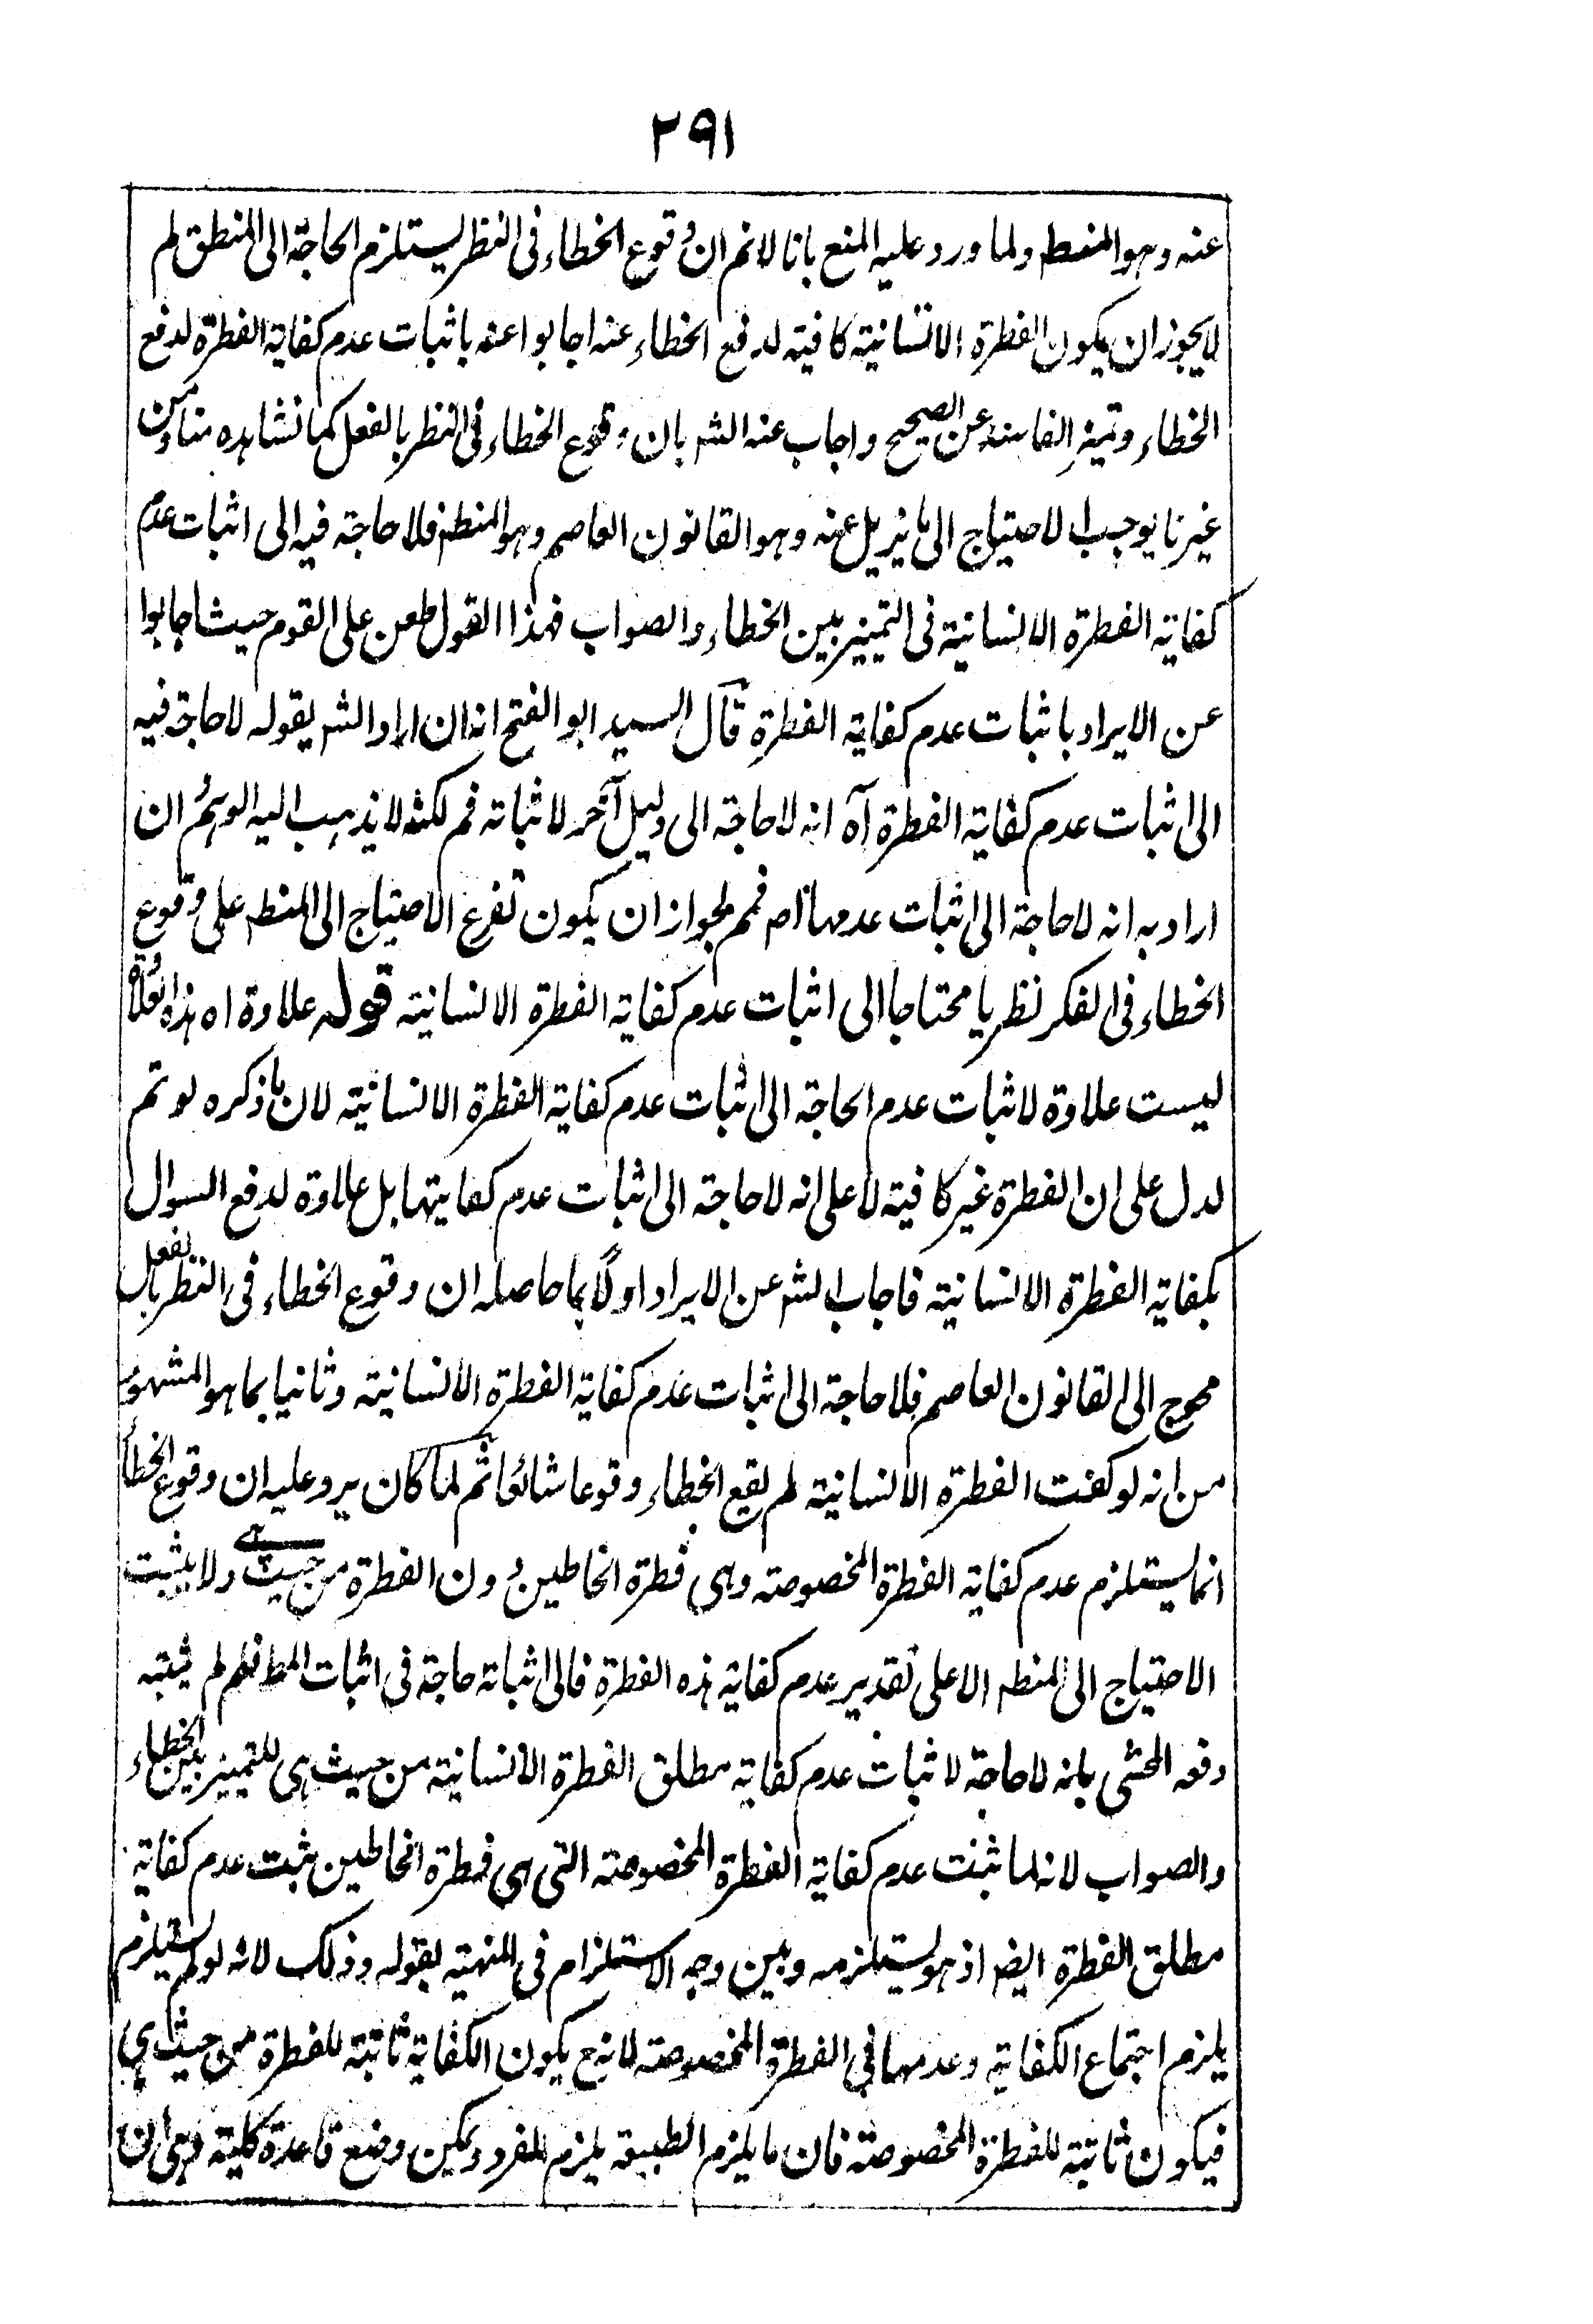 ٢٩١
عنه وهو المنط ولما ورد عليه المنع بانا لانم ان وقوع الخطاء فى النظر يستلزم الحاجة الى المنطق لم
لا يجوز ان يكون الفطرة الانسانية كافية لدفع الخطاء عنه اجابوا عنه باثبات عدم كفاية الفطرة لدفع
الخطاء وتميز الفاسد عن الصحيح واجاب عنه الشر بان وقوع الخطاء فى النظر بالفعل كما نشاهده منا ومن
غيرنا يوجب الاحتياج الى ما يزيل عنه وهو القانون العاصم وهو المنطق فلا حاجة فيه الى اثبات عدم
كفاية الفطرة الانسانية فى التمييز بين الخطاء والصواب فهذا القول طعن على القوم حيث اجابوا
عن الايراد باثبات عدم كفاية الفطرة قال السيد ابو الفتح انه ان اراد الشر بقوله لا حاجة فيه
الى اثبات عدم كفاية الفطرة آه انه لا حاجة الى دليل آخر لاثباته فم لكنه لا يذهب اليه الوهم ان
اراد به انه لا حاجة الى اثبات عدمها اه فمم لجواز ان يكون تفرع الاحتياج الى المنط على وقوع
الخطاء فى الفكر نظريا محتاجا الى اثبات عدم كفاية الفطرة الانسانية قوله علاوة اه هذه العلاوة
ليست علاوة لاثبات عدم الحاجة الى اثبات عدم كفاية الفطرة الانسانية لان ما ذكره لو تم
لدل على ان الفطرة غير كافية لا على انه لا حاجة الى اثبات عدم كفايتها بل علاوة لدفع السوال
بكفاية الفطرة الانسانية فاجاب الشر عن الايراد اولًا بما حاصله ان وقوع الخطاء فى النظر بالفعل
محوج الى القانون العاصم فلا حاجة الى اثبات عدم كفاية الفطرة الانسانية وثانيا بما هو المشهور
من انه لو كفت الفطرة الانسانية لم يقع الخطاء وقوعا شائعا ثم لما كان يرد عليه ان وقوع الخطأ
انما يستلزم عدم كفاية الفطرة المخصوصة وهى فطرة الخاطين دون الفطرة من حيث هى ولا يثبت
الاحتياج الى المنط الا على تقدير عدم كفاية هذه الفطرة فالى اثباته حاجة فى اثبات المط فلم لم يثبته
دفعه المحشى بانه لا حاجة لاثبات عدم كفاية مطلق الفطرة الانسانية من حيث هى للتمييز بين الخطاء
والصواب لانه لما ثبت عدم كفاية الفطرة المخصوصة التى هى فطرة الخاطين ثبت عدم كفاية
مطلق الفطرة ايضا اذ هو يستلزمه وبين وجه الاستلزام فى المنهية بقوله وذلك لانه لو لم يستلزم
يلزم اجتماع الكفاية وعدمها فى الفطرة المخصوصة لانه ح يكون الكفاية ثابتة للفطرة من حيث هى
فيكون ثابتة للفطرة المخصوصة فان ما يلزم الطبيعة يلزم للفرد ويمكن وضع قاعدة كلية وهى ان